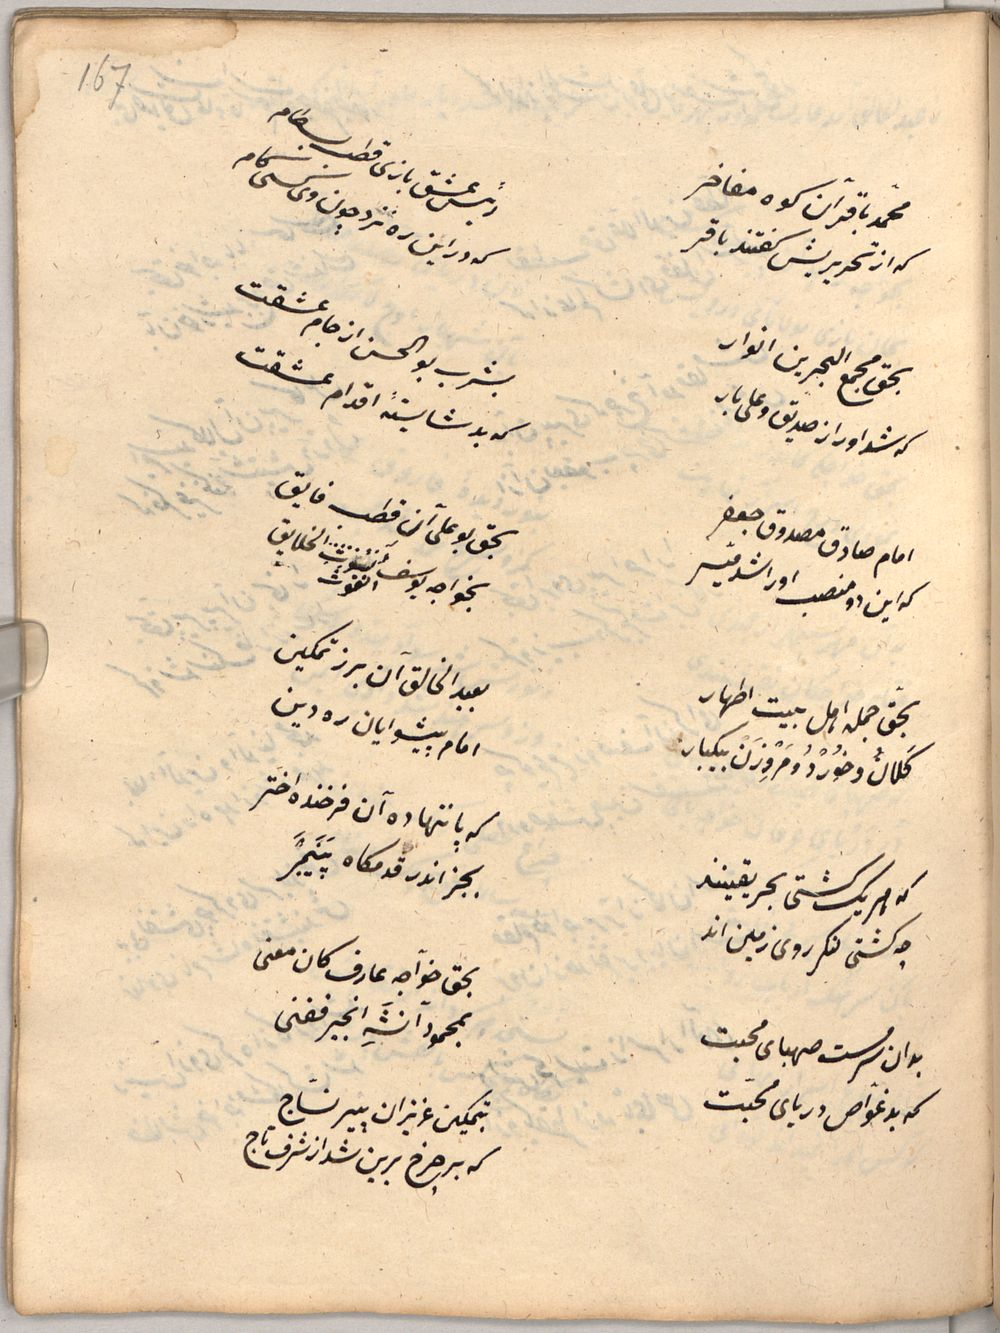 167
محمد باقر آن کوه مفاخر
که از تحریریش گفتند باقر
بحق مجمع البحرین انوار
که شد او را از صدیق و علی بار
امام صادق مصدوق جعفر
که این دو منصب او را شد میسر
بحق جمله اهل بیت اطهار
کلان و خورد و مرد و زن بیکبار
که هر یک کشتی بحر یقینند
چه کشتی لنکر روی زمین اند
بدان سرمست صهبای محبت
که بد غواص دریای محبت
رئیس عشق بازی قطب بسطام
که در این ره نزد چون وی کسی کام
بشرب بو الحسن از جام عشقت
که بد شایسته اقدام عشقت
بحق بو علی آن قطب فایق
بخواجه یوسف الغوث الخلایق
بعبد الخالق آن برز تمکین
امام پیشوایان ره دین
که پا ننهاده آن فرخنده اختر
بجز اندر قدمکاه پیمبر
بحق خواجه عارف کان معنی
بمحمود آنشه انجیر فغنی
بتمکین عزیزان پیر نساج
که بر چرخ برین شد از شرف تاج